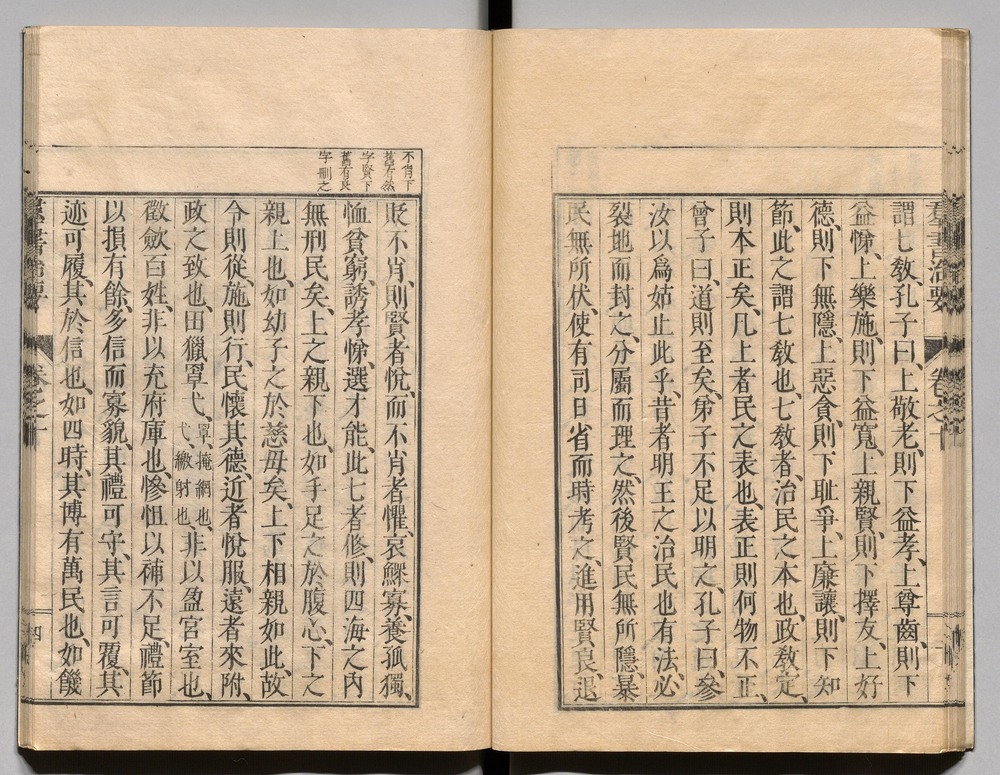 羣書治要
卷之十
謂七敎、孔子曰、上敬老、則下益孝、上尊齒、則下
益悌、上樂施、則下益寬、上親賢、則下擇友、上好
德、則下無隱、上惡貪、則下耻爭、上廉讓、則下知
節、此之謂七敎也、七敎者、治民之本也、政敎定、
則本正矣、凡上者民之表也、表正則何物不正、
曾子曰、道則至矣、弟子不足以明之、孔子曰、參
汝以爲姑止此乎、昔者明王之治民也有法、必
裂地而封之、分屬而理之、然後賢民無所隱、暴
民無所伏、使有司日省而時考之、進用賢良、退
不肖下
舊有然
字賢下
舊有良
字刪之
貶不肖、則賢者悅、而不肖者懼、哀鰥寡、養孤獨、
恤貧窮、誘孝悌、選才能、此七者修、則四海之內
無刑民矣、上之親下也、如手足之於腹心、下之
親上也、如幼子之於慈母矣、上下相親如此、故
令則從、施則行、民懷其德、近者悅服、遠者來附、
政之致也、田獵罩弋、罩掩網也、弋繳射也、非以盈宮室也、
徵歛百姓、非以充府庫也、慘怛以補不足、禮節
以損有餘、多信而寡貌、其禮可守、其言可覆、其
迹可履、其於信也、如四時、其博有萬民也、如饑
羣書治要
卷之十
四